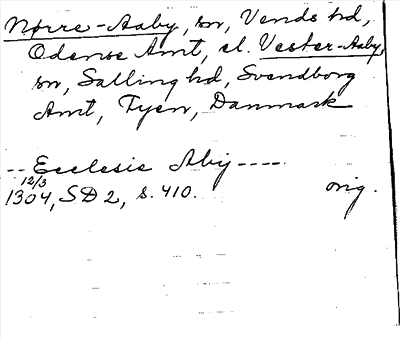 Nørre-Aaby, sn, Vends hd,
Odense Amt, el. Vester-Aaby,
sn, Salling hd, Svendborg
Amt, Fyen, Danmark
--Ecclesie Abij----
12/3
1304, SD 2, s. 410. orig.